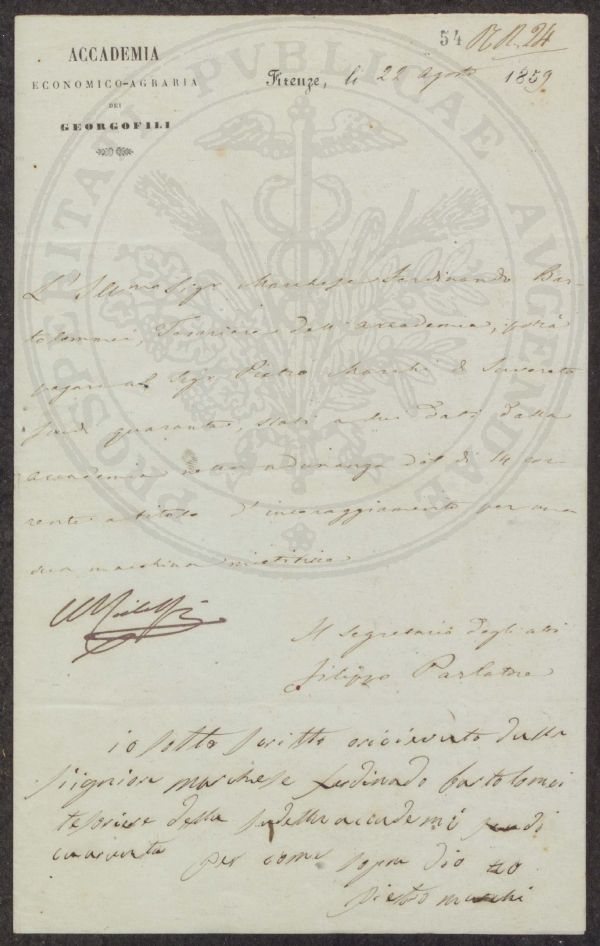 54 N. 24
ACCADEMIA
ECONOMICO-AGRARIA
DEI
GEORGOFILI
Firenze, li 22 Agosto 1859
PROSPERITATI PUBLICAE AUGENDAE
L'Illmo Sigr Marchese Ferdinando Bar-
tolommei, Tesoriere dell'accademia, potrà
pagare al Sigr Pietro Marchi di
scudi quaranta, stati a lui dati dalla
accademia nella adunanza del dì 14 cor-
rente a titolo d'incoraggiamento per una
sua macchina mietitrice
Il Segretario degli atti
Filippo Parlatore
io sotto scritto o ricievuto dalla
signiore marchese ferdinado bartolomei
tesoriere della sudetta accademi scudi
cuaranta per come sopra dio
pietro marchi